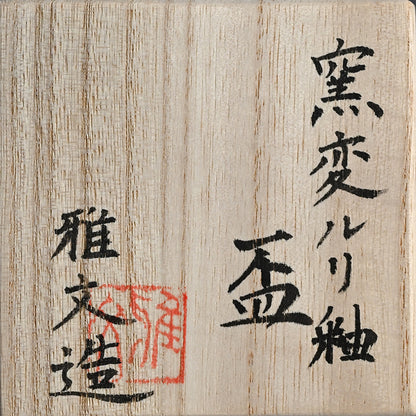 窯変ルリ釉
盃
雅文造